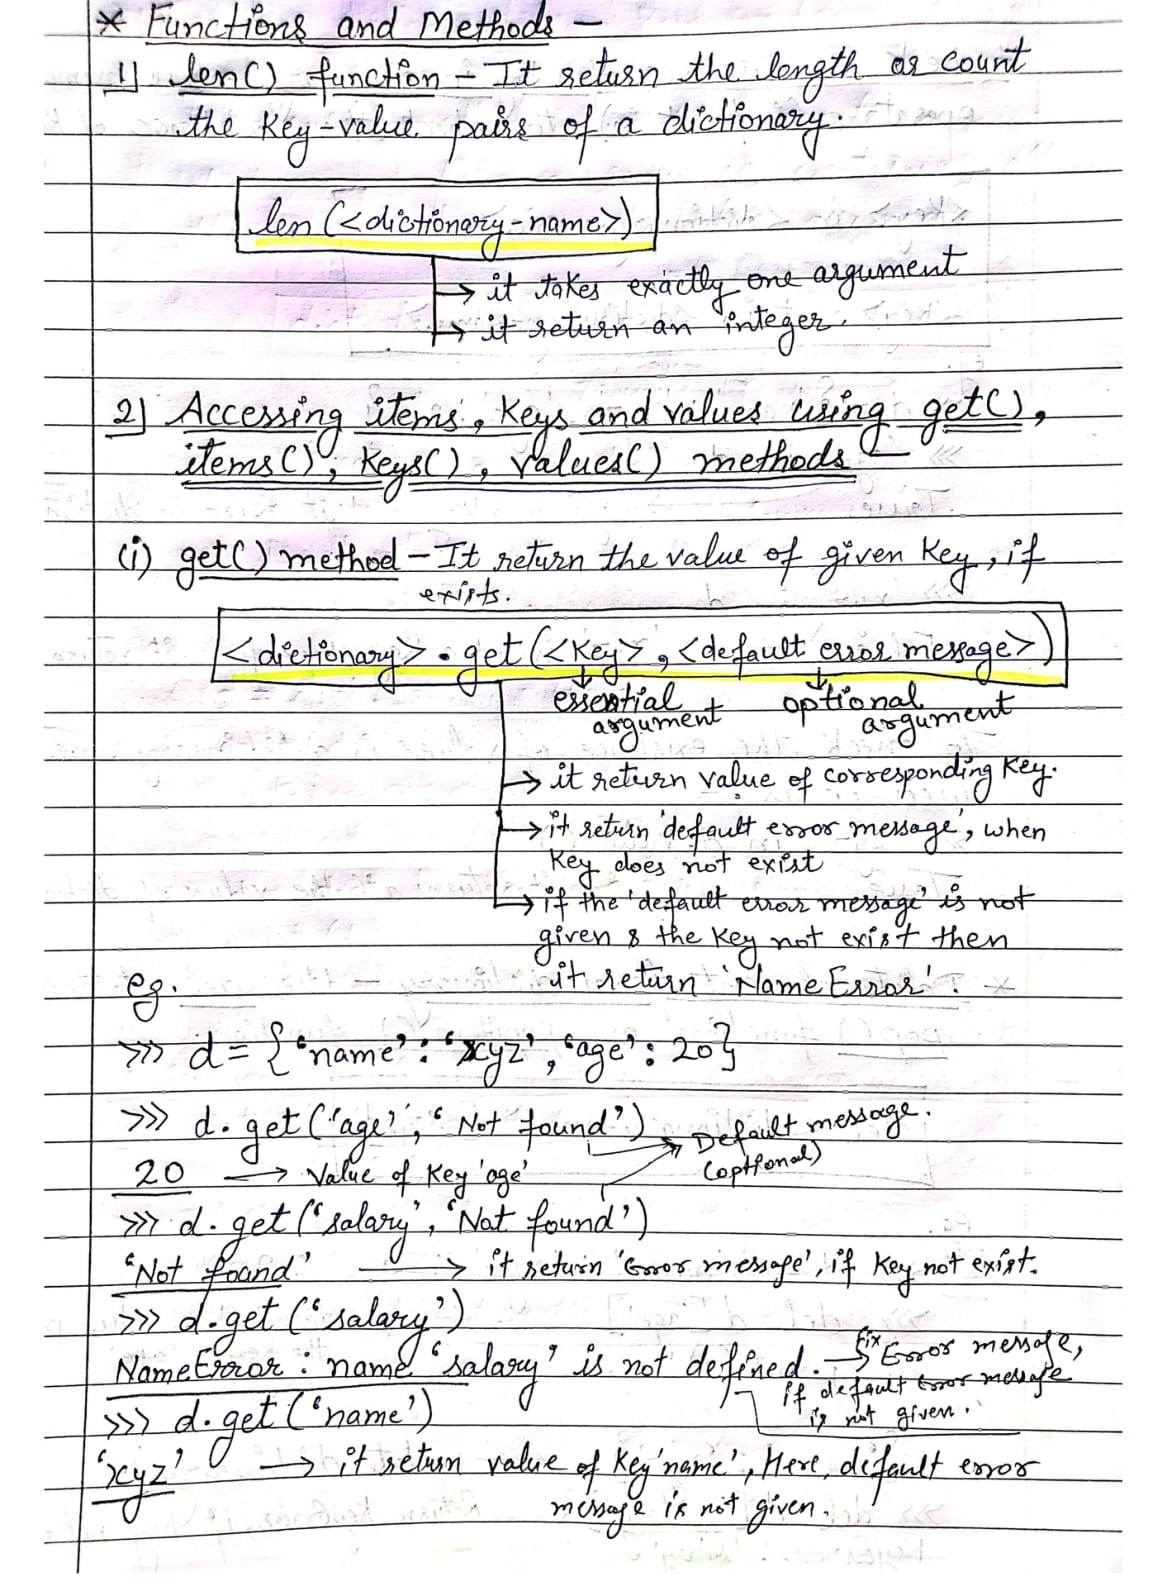 * Functions and Methods –
1) len() function – It return the length or count
the Key-value pairs of a dictionary.
len (<dictionary-name>)
→ it takes exactly one argument
→ it return an integer.
2) Accessing items, Keys and values using get(),
items(), Keys(), values() methods
(i) get() method – It return the value of given Key, if
exists.
<dictionary> . get (<Key>, <default error message>)
essential optional
argument argument
→ it return value of corresponding Key.
→ it return 'default error message', when
Key does not exist
→ if the 'default error message' is not
given & the Key not exist then
it return 'Name Error'.
eg.
>>> d = {'name' : 'xyz', 'age' : 20}
>>> d. get ('age', 'Not found') → Default message.
(optional)
20 → Value of Key 'age'
>>> d. get ('salary', 'Not found')
'Not found' → it return 'Error message', if Key not exist.
>>> d.get ('salary')
NameError : name 'salary' is not defined. → Fix Error message,
if default Error message
is not given.
>>> d. get ('name')
'xyz' → it return value of Key 'name', Here, default error
message is not given.